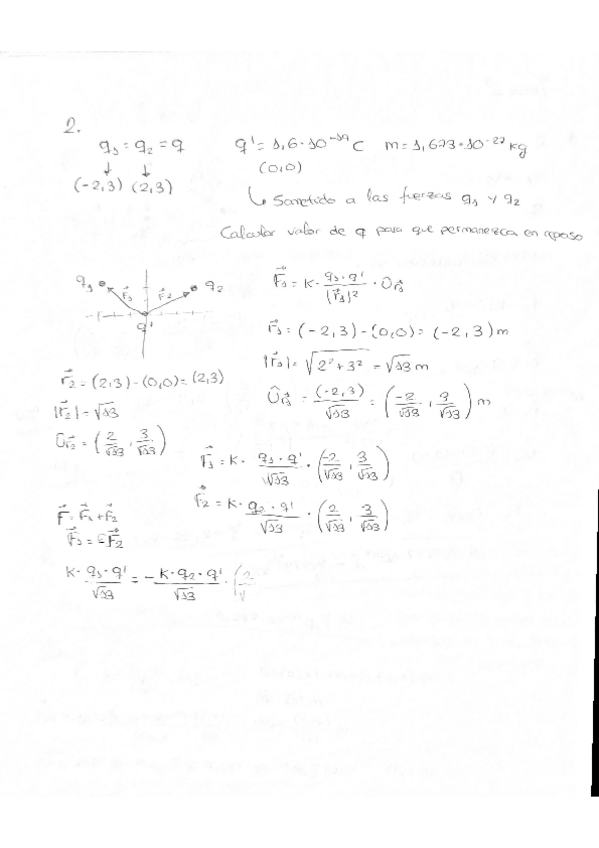 2.
q₁ = q₂ = q    q' = 1,6·10⁻¹⁹ C    m = 1,673·10⁻²⁷ kg
↓ ↓    (0,0)
(-2,3) (2,3)    ↳ Sometido a las fuerzas q₁ y q₂
Calcular valor de q para que permanezca en reposo
q₁ F⃗₁ F⃗₂ q₂
q'
F⃗₁ = K · q₁·q' / |r⃗₁|² · Ur⃗₁
r⃗₁ = (-2,3) - (0,0) = (-2,3) m
|r⃗₁| = √(2² + 3²) = √13 m
Ûr⃗₁ = (-2,3)/√13 = (-2/√13 , 3/√13) m
r⃗₂ = (2,3) - (0,0) = (2,3)
|r⃗₂| = √13
Ûr₂ = (2/√13 , 3/√13)
F⃗₁ = K · q₁·q'/√13 · (-2/√13 , 3/√13)
F⃗₂ = K · q₂·q'/√13 · (2/√13 , 3/√13)
F⃗ = F⃗₁ + F⃗₂
F⃗₁ = -F⃗₂
K · q₁·q'/√13 = -K·q₂·q'/√13 · (2/√